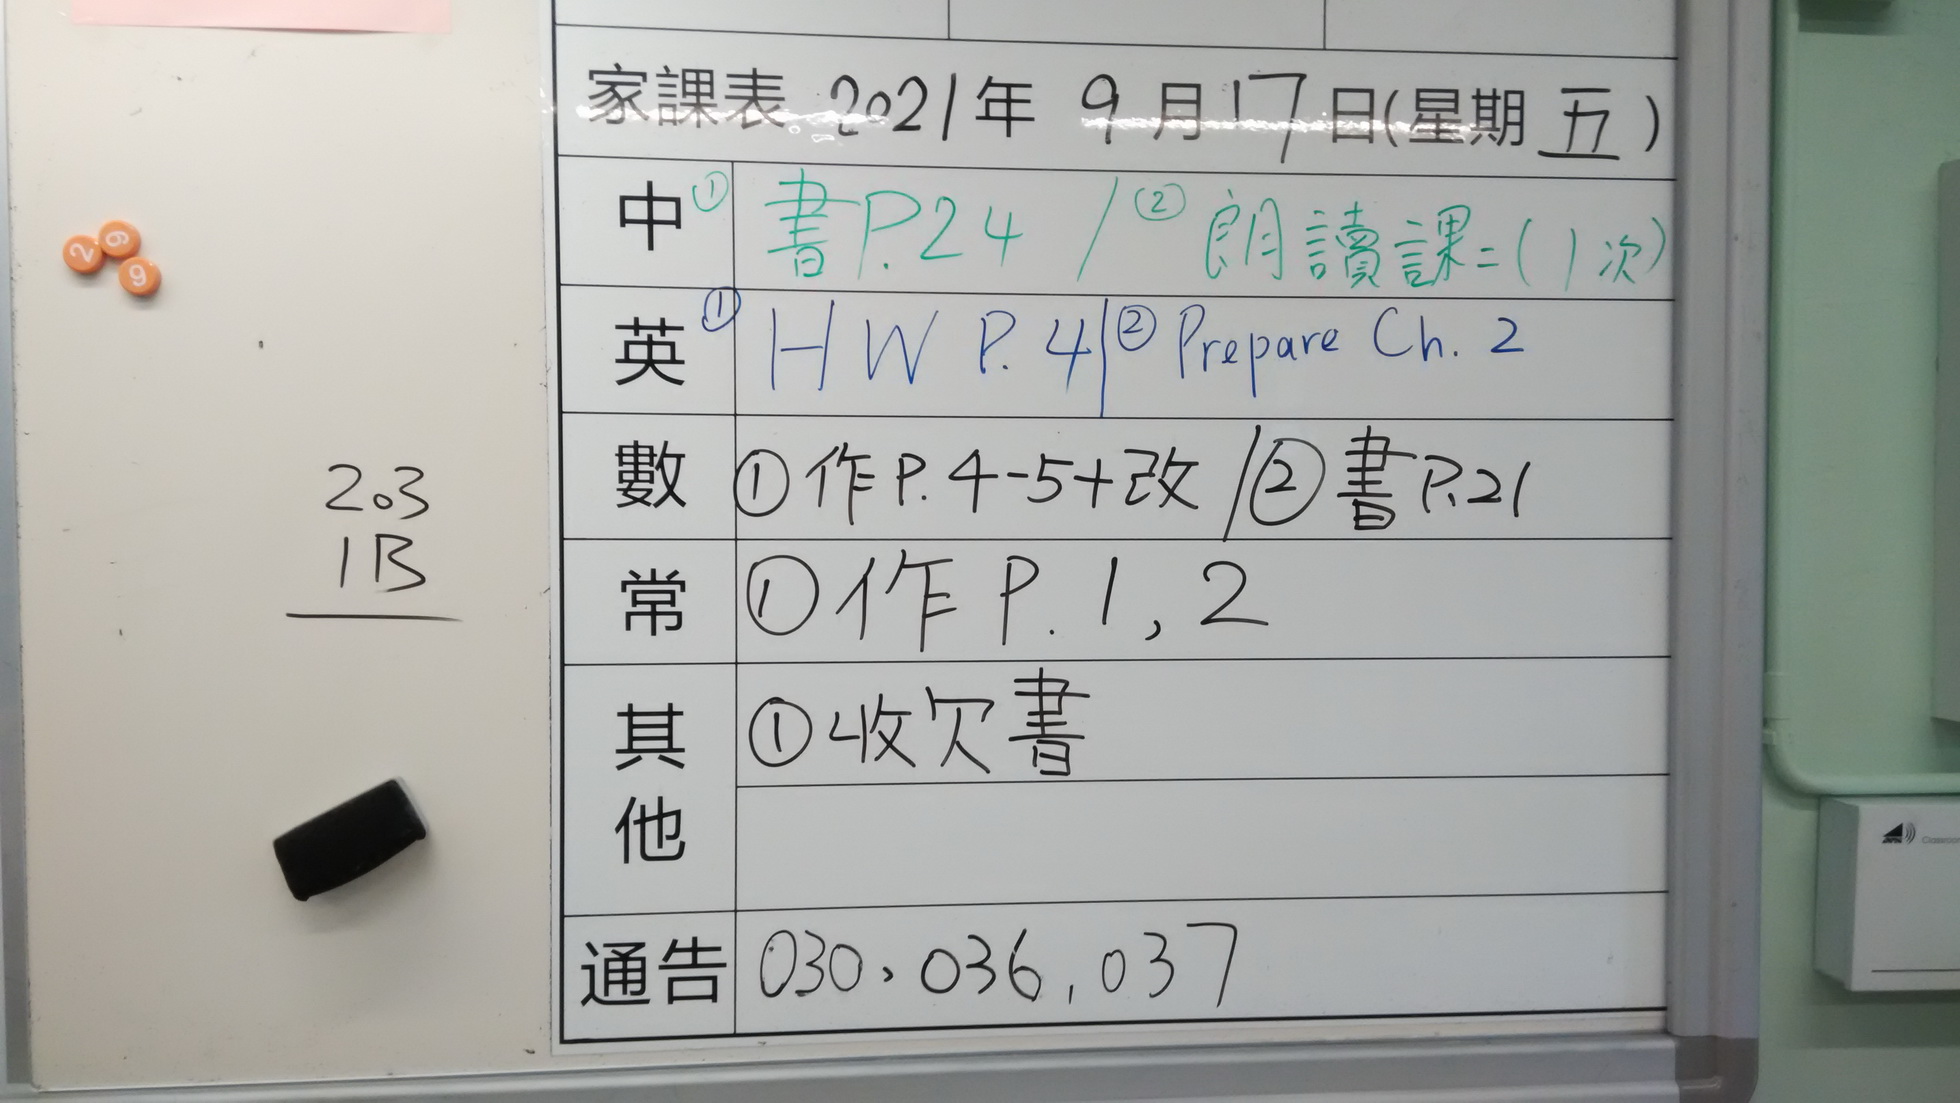 家課表 2021年 9月17日(星期五)
中 ① 書P.24 / ② 朗讀課二(1次)
英 ① HW P.4 / ② Prepare Ch. 2
數 ①作P.4-5+改 / ②書P.21
常 ①作P.1,2
其他 ①收欠書
通告 030、036,037
203
1B
2
6
9